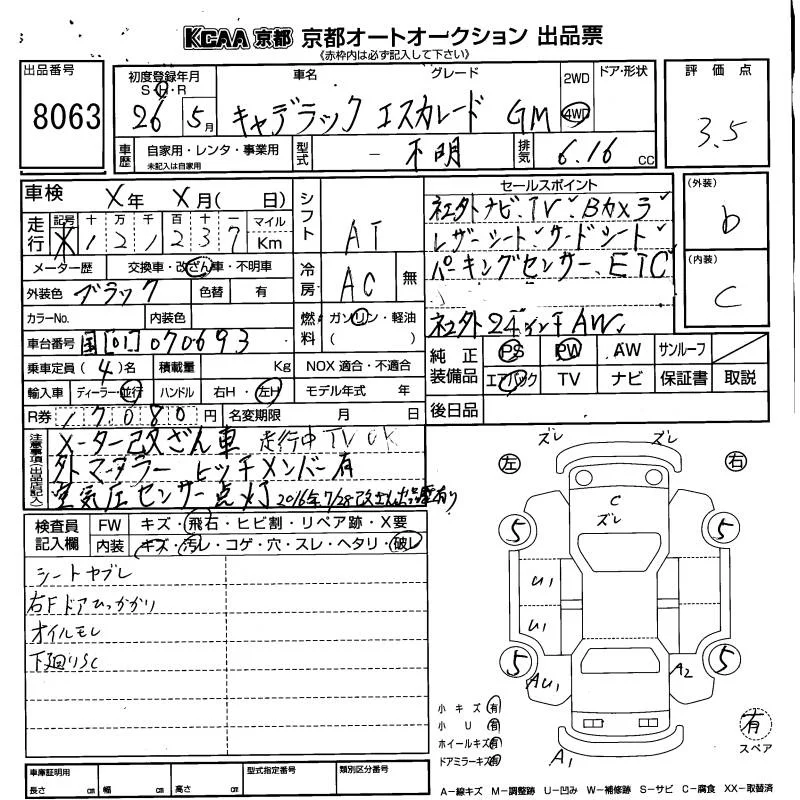 KCAA 京都 京都オートオークション 出品票
《赤枠内は必ず記入して下さい》
出品番号
8063
初度登録年月
S・H・R
26 5月
車名
グレード
キャデラック エスカレード GM
2WD
4WD
ドア・形状
評価点
3.5
車歴
自家用・レンタ・事業用
未記入は自家用
型式
－不明
排気
6.16 CC
車検
X年 X月( 日)
走行
記号 十 万 千 百 十 一 マイル
X 1 2 1 2 3 7 Km
メーター歴 交換車・改ざん車・不明車
外装色 ブラック 色替 有
カラーNo. 内装色
車台番号 国[01]070693
乗車定員 (4)名 積載量 Kg
輸入車 ディーラー・並行 ハンドル 右H・左H
R券 17080円 名変期限 月 日
シフト AT
冷房 AC 無
燃料 ガソリン・軽油
( )
NOX 適合・不適合
モデル年式 年
セールスポイント
社外ナビ、TV、Bカメラ
レザーシート、サードシート
パーキングセンサー、ETC
社外24インチAW
(外装)
b
(内装)
C
純正装備品
PS PW AW サンルーフ
エアバック TV ナビ 保証書 取説
後日品
注意事項(出品店記入)
メーター改ざん車 走行中TV OK
外マフラー ヒッチメンバー有
空気圧センサー点灯 2016年7/28改ざん出品歴有り
検査員記入欄
FW キズ・飛石・ヒビ割・リペア跡・X要
内装 キズ・汚レ・コゲ・穴・スレ・ヘタリ・破レ
シートヤブレ
右Fドアひっかかり
オイルモレ
下廻りSC
ズレ ズレ
左 右
C
ズレ
5 5
U1
U1
5 5
AU1 A2
A1
小キズ 有
小U 有
ホイールキズ 有
ドアミラーキズ 有
有
スペア
車庫証明用
長さ cm 幅 cm 高さ cm
型式指定番号
類別区分番号
A－線キズ M－調整跡 U－凹み W－補修跡 S－サビ C－腐食 XX－取替済